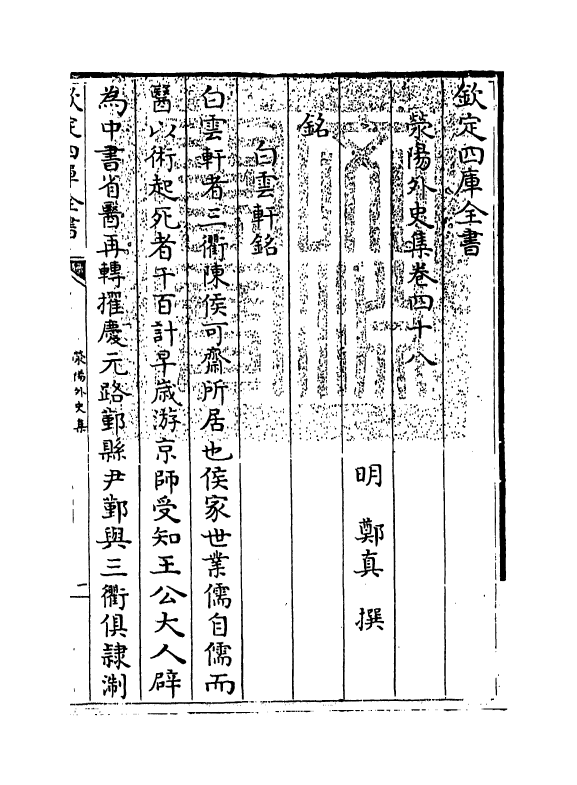 欽定四庫全書
滎陽外史集卷四十八
明 鄭真 撰
銘
白雲軒銘
白雲軒者三衢陳侯可齋所居也侯家世業儒自儒而
醫以術起死者千百計早歳游京師受知王公大人辟
為中書省醫再轉擢慶元路鄞縣尹鄞與三衢俱隷淛
欽定四庫全書
滎陽外史集